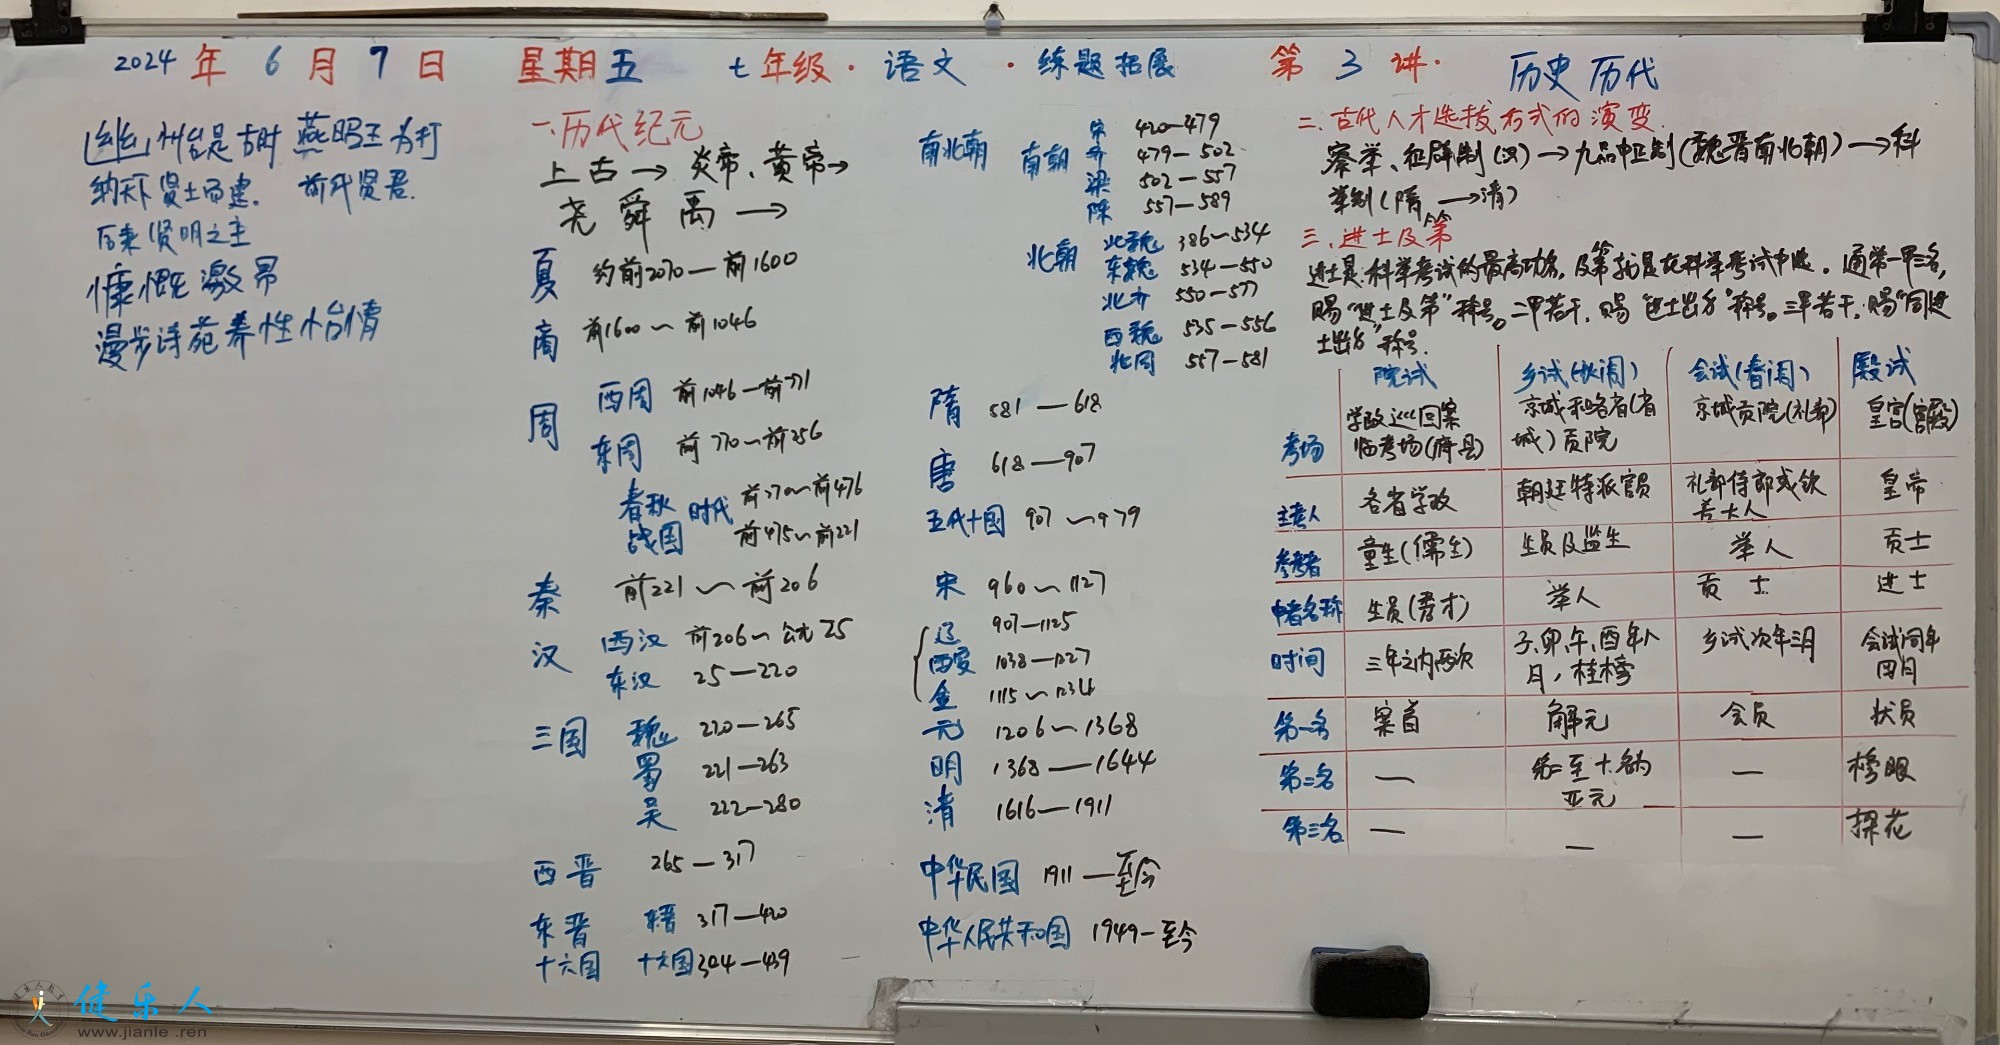 2024年6月7日 星期五 七年级·语文·练题拓展 第3讲· 历史历代
幽州台是古时燕昭王为打
纳天下贤士而建. 前代贤君.
后来贤明之主
慷慨激昂
漫步诗苑养性怡情
一.历代纪元
上古→炎帝、黄帝→
尧 舜 禹→
夏 约前2070—前1600
商 前1600~前1046
周 西周 前1046—前771
东周 前770~前256
春秋 时代 前770~前476
战国 前475~前221
秦 前221~前206
汉 西汉 前206~公元25
东汉 25—220
三国 魏 220—265
蜀 221—263
吴 222—280
西晋 265—317
东晋 东晋 317—420
十六国 十六国 304—439
南北朝 南朝 宋 420—479
齐 479—502
梁 502—557
陈 557—589
北朝 北魏 386~534
东魏 534—550
北齐 550—577
西魏 535—556
北周 557—581
隋 581—618
唐 618—907
五代十国 907~979
宋 960~1127
辽 907—1125
西夏 1038—1227
金 1115~1234
元 1206~1368
明 1368—1644
清 1616—1911
中华民国 1911—至今
中华人民共和国 1949—至今
二.古代人才选拔方式的演变.
察举、征辟制(汉)→九品中正制(魏晋南北朝)→科
举制(隋→清)
三.进士及第
进士是科举考试的最高功名,及第就是在科举考试中选.通常一甲三名,
赐“进士及第”称号。二甲若干,赐“进士出身”称号。三甲若干,赐“同进
士出身”称号.
院试 乡试(秋闱) 会试(春闱) 殿试
考场 学政巡回案临考场(府县) 京城和各省(省城)贡院 京城贡院(礼部) 皇宫(宫殿)
主考人 各省学政 朝廷特派官员 礼部侍郎或钦差大人 皇帝
参考者 童生(儒生) 生员及监生 举人 贡士
中者名称 生员(秀才) 举人 贡士 进士
时间 三年之内两次 子、卯、午、酉年八月,桂榜 乡试次年三月 会试同年四月
第一名 案首 解元 会员 状员
第二名 — 第二至十名为亚元 — 榜眼
第三名 — — — 探花
健乐人
www.jianle.ren